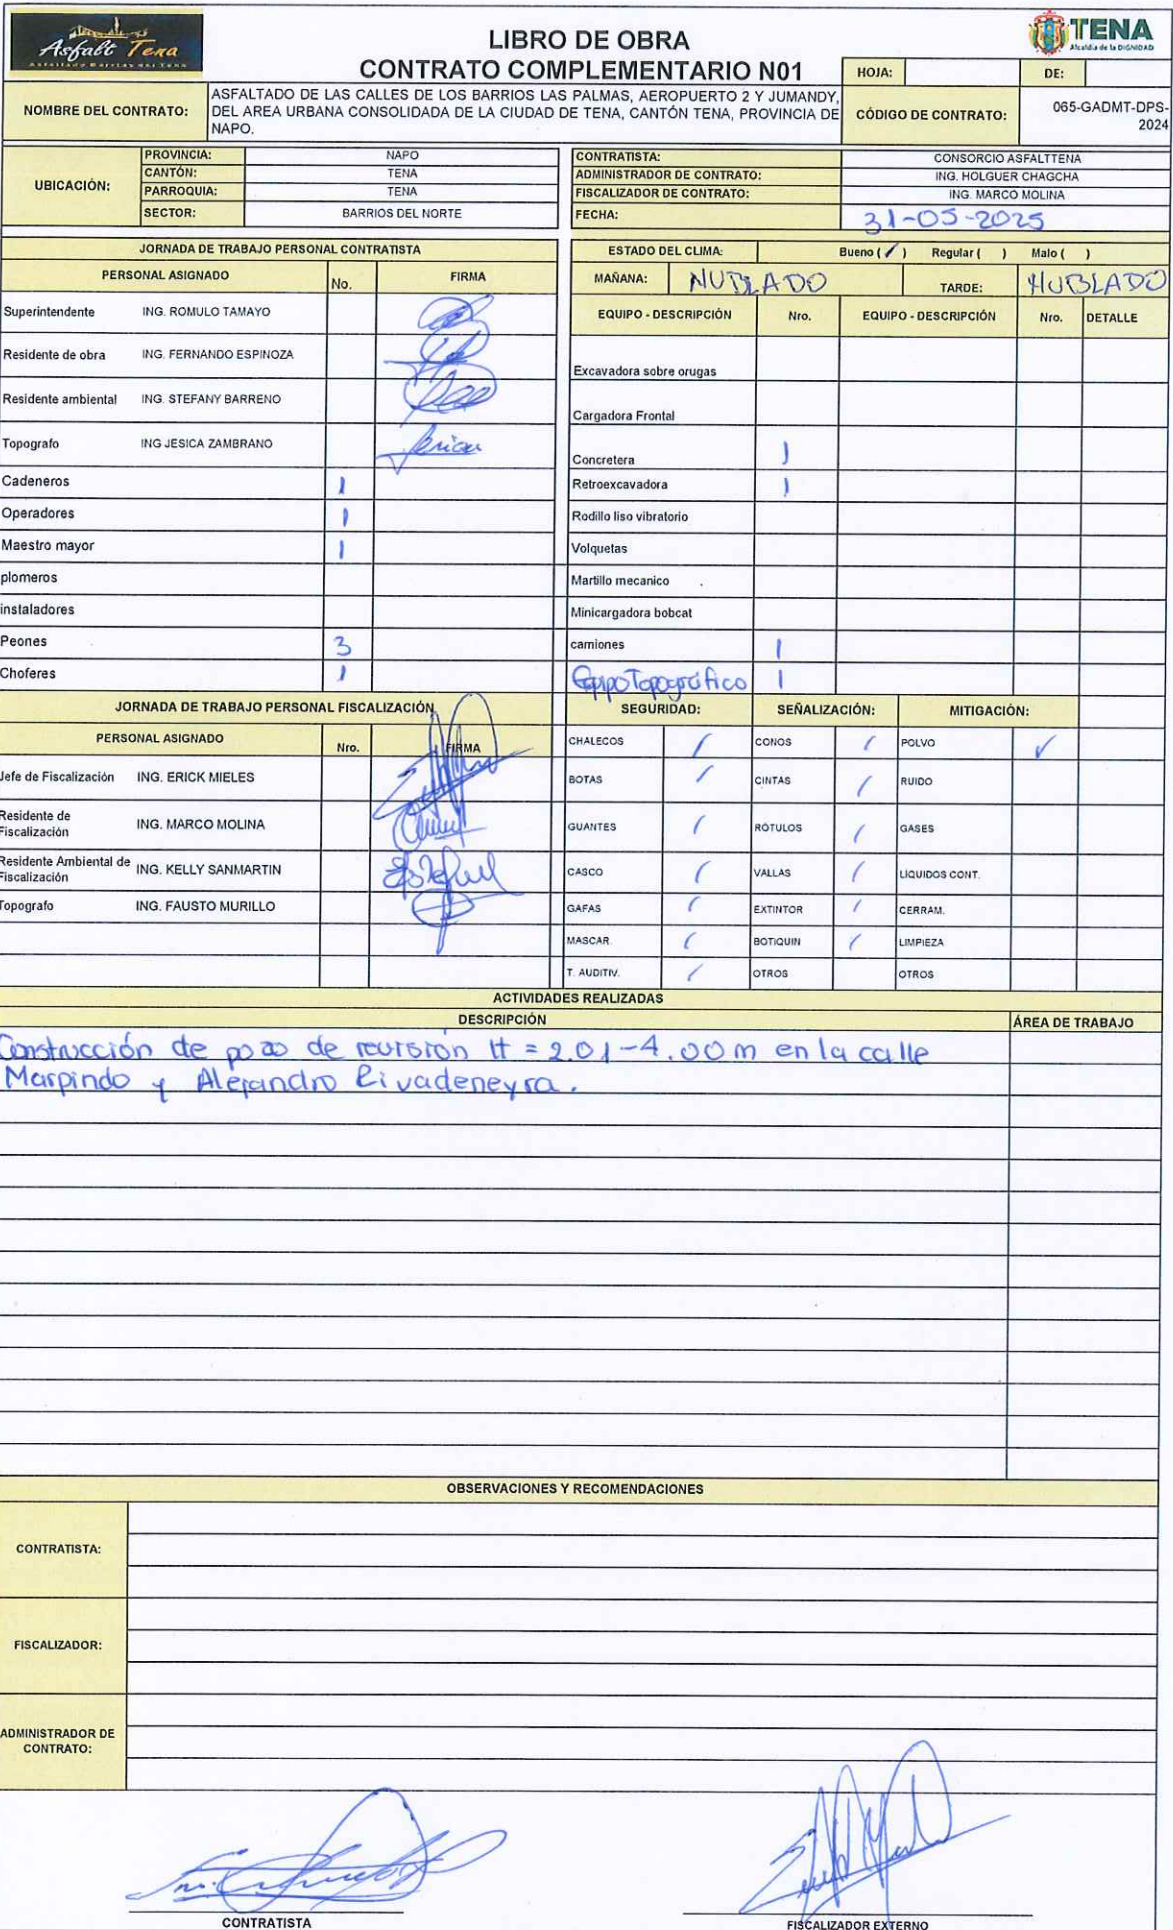 Asfalt Tena
LIBRO DE OBRA
CONTRATO COMPLEMENTARIO N01
TENA
Alcaldía de la DIGNIDAD
HOJA: DE:
NOMBRE DEL CONTRATO: ASFALTADO DE LAS CALLES DE LOS BARRIOS LAS PALMAS, AEROPUERTO 2 Y JUMANDY,
DEL AREA URBANA CONSOLIDADA DE LA CIUDAD DE TENA, CANTÓN TENA, PROVINCIA DE
NAPO.
CÓDIGO DE CONTRATO: 065-GADMT-DPS-
2024
UBICACIÓN:
PROVINCIA: NAPO
CANTÓN: TENA
PARROQUIA: TENA
SECTOR: BARRIOS DEL NORTE
CONTRATISTA: CONSORCIO ASFALTTENA
ADMINISTRADOR DE CONTRATO: ING. HOLGUER CHAGCHA
FISCALIZADOR DE CONTRATO: ING. MARCO MOLINA
FECHA: 31-05-2025
JORNADA DE TRABAJO PERSONAL CONTRATISTA
PERSONAL ASIGNADO No. FIRMA
Superintendente ING. ROMULO TAMAYO
Residente de obra ING. FERNANDO ESPINOZA
Residente ambiental ING. STEFANY BARRENO
Topografo ING JESICA ZAMBRANO
Cadeneros 1
Operadores 1
Maestro mayor 1
plomeros
instaladores
Peones 3
Choferes 1
ESTADO DEL CLIMA: Bueno ( / ) Regular ( ) Malo ( )
MAÑANA: NUBLADO TARDE: NUBLADO
EQUIPO - DESCRIPCIÓN Nro. EQUIPO - DESCRIPCIÓN Nro. DETALLE
Excavadora sobre orugas
Cargadora Frontal
Concretera 1
Retroexcavadora 1
Rodillo liso vibratorio
Volquetas
Martillo mecanico
Minicargadora bobcat
camiones 1
Eqipo Topográfico 1
JORNADA DE TRABAJO PERSONAL FISCALIZACIÓN
PERSONAL ASIGNADO Nro. FIRMA
Jefe de Fiscalización ING. ERICK MIELES
Residente de
Fiscalización ING. MARCO MOLINA
Residente Ambiental de
Fiscalización ING. KELLY SANMARTIN
Topografo ING. FAUSTO MURILLO
SEGURIDAD: SEÑALIZACIÓN: MITIGACIÓN:
CHALECOS / CONOS / POLVO ✓
BOTAS / CINTAS / RUIDO
GUANTES / ROTULOS / GASES
CASCO / VALLAS / LIQUIDOS CONT.
GAFAS / EXTINTOR / CERRAM.
MASCAR. / BOTIQUIN / LIMPIEZA
T. AUDITIV. / OTROS OTROS
ACTIVIDADES REALIZADAS
DESCRIPCIÓN ÁREA DE TRABAJO
Construcción de pozo de revisión H = 2.01-4.00 m en la calle
Marpindo y Alejandro Rivadeneyra.
OBSERVACIONES Y RECOMENDACIONES
CONTRATISTA:
FISCALIZADOR:
ADMINISTRADOR DE
CONTRATO:
CONTRATISTA
FISCALIZADOR EXTERNO